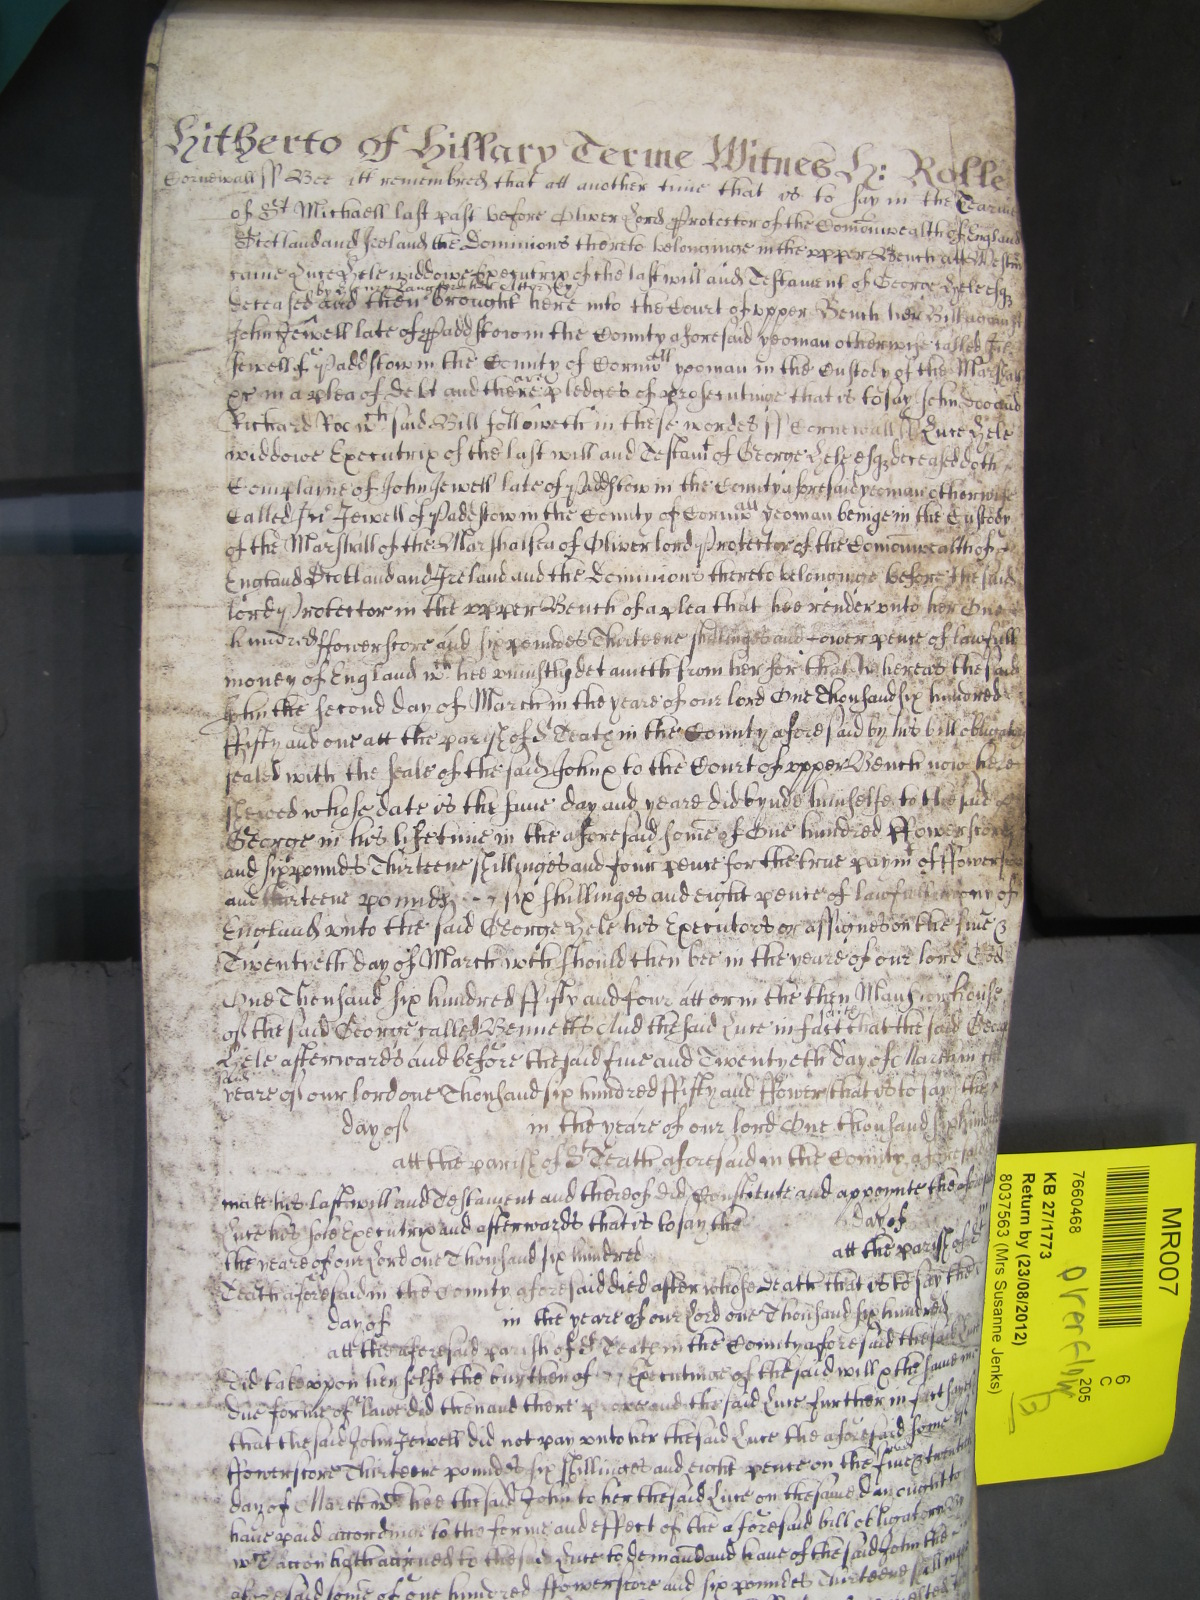 Hitherto of Hillary Terme Witnes H: Rolle
Cornewall ss Bee itt remembred that att another time that is to say in the Tearme
of St Michaell last past before Oliver Lord Protector of the Comonwealth of England
Scotland and Ireland & the Dominions thereto belonginge in the upper Bench att Westm
came Luce Hele widdowe Executrix of the last will and Testament of George Hele esqr
deceased by Attorney and then brought here into the Court of upper Bench her Bill against
John Jewell late of Paddstow in the County aforesaid yeoman otherwise called
Jewell of Paddstow in the County of Cornwall yeoman in the Custody of the Marshall
&c in a plea of Debt and there are pledges of prosecutinge that is to say John Doo and
Richard Roo wch said Bill followeth in these wordes ss Cornewall ss Luce Hele
widdowe Executrix of the last will and Testamt of George Hele esqr deceased doth
Complaine of John Jewell late of Paddstow in the County aforesaid yeoman otherwise
Called Jewell of Paddstow in the County of Cornwall yeoman beinge in the Custody
of the Marshall of the Marshalsea of Oliver lord Protector of the Comonwealth of
England Scotland and Ireland and the Dominions thereto belonginge before the said
lord Protector in the upper Bench of a plea that hee render unto her One
hundred ffowerscore and six poundes Thirteene shillinges and fower pence of lawfull
money of England wch hee uniustly detaineth from her for that Whereas the said
John the second day of March in the yeare of our lord One Thousand six hundred
ffifty and one att the parish of St Teath in the County aforesaid by his bill obligatory
sealed with the seale of the said John & to the Court of upper Bench now here
shewed whose date is the same day and yeare did bynde himselfe to the said
George in his life time in the aforesaid some of One hundred ffowerscore
and six pounds Thirteene shillinges and four pence for the true paymt of ffowerscore
and thirteene poundes six shillinges and eight pence of lawfull mony of
England unto the said George Hele his Executors or assignes on the five &
Twentyeth day of March wch should then bee in the yeare of our lord God
One Thousand six hundred ffifty and four att or in the then Mansion house
of the said George called Bennetts And the said Luce in fact saith that the said George
Hele afterwards and before the said five and Twentyeth day of March in the
said yeare of our lord one Thousand six hundred ffifty and ffower that is to say the
day of in the yeare of our lord One thousand six hundred
att the parish of St Teath aforesaid in the County aforesaid
made his last will and Testament and thereof did Constitute and appointe the aforesaid
Luce his sole Executrix and afterwards that is to say the day of in
the yeare of our Lord one Thousand six hundred att the parish of St
Teath aforesaid in the County aforesaid died after whose death that is to say the
day of in the yeare of our Lord one Thousand six hundred
att the aforesaid parish of St Teath in the County aforesaid the said Luce
Did take upon her selfe the burthen of Executinge of the said will & the same in
due forme of lawe did then and there prove and the said Luce further in fact saith
that the said John Jewell did not pay unto her the said Luce the aforesaid some of
ffowerscore Thirteene poundes six shillinges and eight pence on the five & twentieth
day of March wch hee the said John to her the said Luce on the same day ought to
have paid accordinge to the forme and effect of the aforesaid bill obligatory By
wch accon hath accrued to the said Luce to demaund and have of the said John the
abovesaid some of one hundred ffowerscore and six poundes Thirteene shillinges
MR007
6
C
205
7660468 overflow
KB 27/1773
Return by (23/08/2012)
8037563 (Mrs Susanne Jenks)